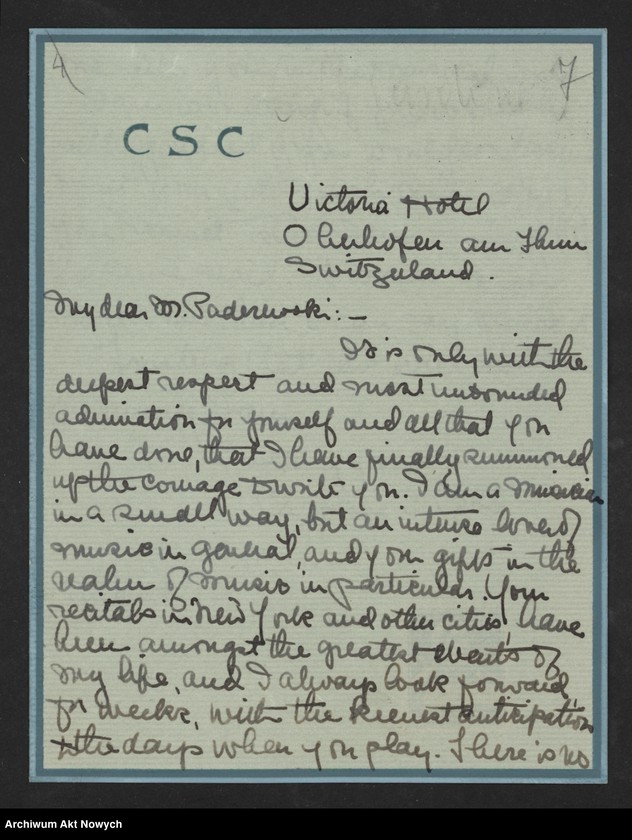 4 7
C S C
Victoria Hotel
Oberhofen am Thun
Switzerland.
My dear Mr. Paderewski:—
It is only with the
deepest respect and most unbounded
admiration for yourself and all that you
have done, that I have finally summoned
up the courage to write you. I am a musician
in a small way, but an intense lover of
music in general, and your gifts in the
realm of music in particular. Your
recitals in New York and other cities, have
been amongst the greatest events of
my life, and I always look forward,
for weeks, with the keenest anticipation
to the days when you play. There is no
Archiwum Akt Nowych